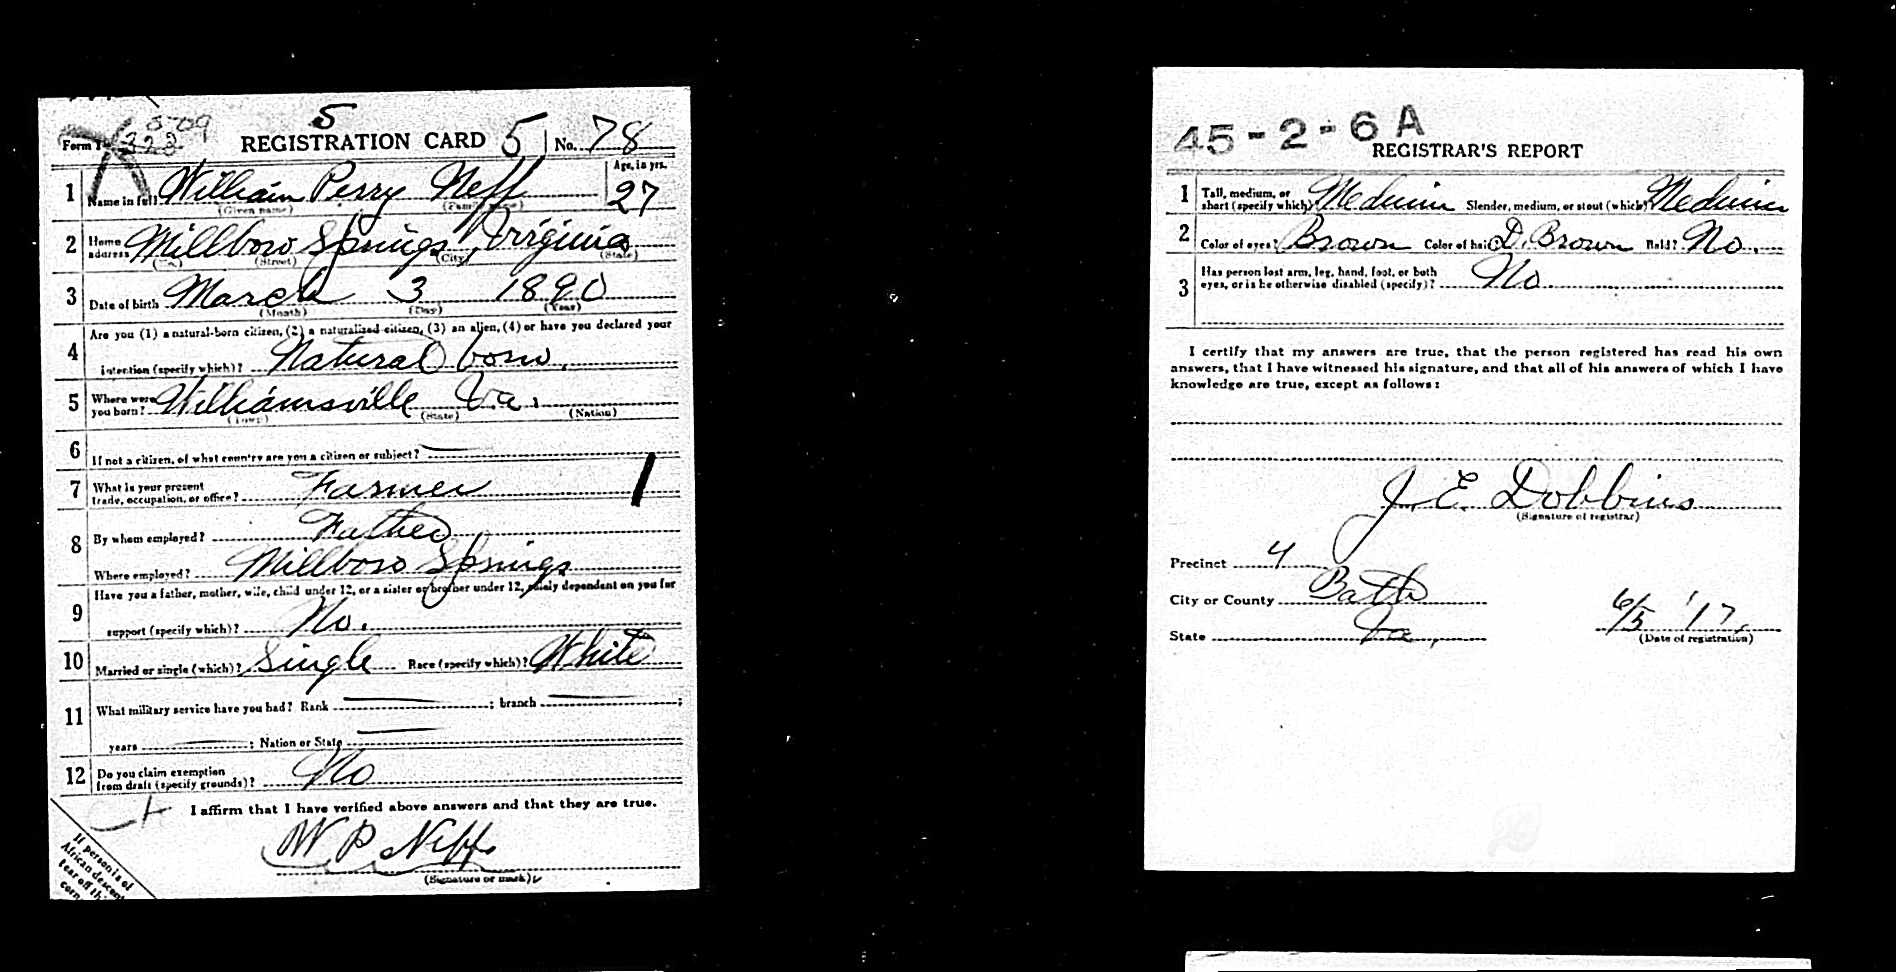 5
5709
Form 1 323 REGISTRATION CARD 5 No. 78
1 Name in full William Perry Neff Age, in yrs. 27
(Given name) (Family name)
2 Home address Millboro Springs, Virginia
(No.) (Street) (City) (State)
3 Date of birth March 3 1890
(Month) (Day) (Year)
4 Are you (1) a natural-born citizen, (2) a naturalized citizen, (3) an alien, (4) or have you declared your
intention (specify which)? Natural born.
5 Where were you born? Williamsville Va.
(Town) (State) (Nation)
6 If not a citizen, of what country are you a citizen or subject?
7 What is your present trade, occupation, or office? Farmer
8 By whom employed? Father
Where employed? Millboro Springs
9 Have you a father, mother, wife, child under 12, or a sister or brother under 12, solely dependent on you for
support (specify which)? No.
10 Married or single (which)? Single Race (specify which)? White
11 What military service have you had? Rank ; branch ;
years ; Nation or State
12 Do you claim exemption from draft (specify grounds)? No
I affirm that I have verified above answers and that they are true.
W P Neff
(Signature or mark)
If person is of
African descent
tear off this
corn
45-2-6 A
REGISTRAR'S REPORT
1 Tall, medium, or short (specify which)? Medium Slender, medium, or stout (which)? Medium
2 Color of eyes? Brown Color of hair? D. Brown Bald? No.
3 Has person lost arm, leg, hand, foot, or both eyes, or is he otherwise disabled (specify)? No
I certify that my answers are true, that the person registered has read his own
answers, that I have witnessed his signature, and that all of his answers of which I have
knowledge are true, except as follows:
J. E. Dobbins
(Signature of registrar)
Precinct 4
City or County Bath
State Va. 6/5 '17.
(Date of registration)